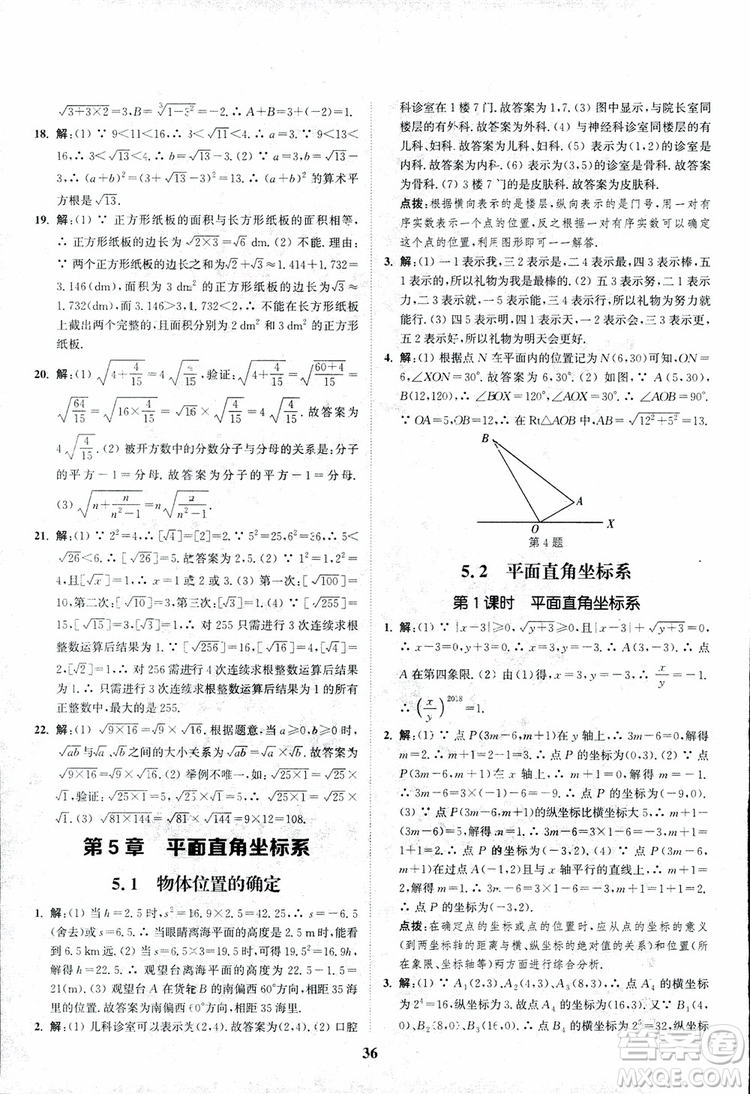 √(3+3×2)=3. ∵ B=∛(1-3²)=-2. ∴ A+B=3+(-2)=1.
18. 解:(1) ∵ 9<11<16. ∴ 3<√11<4. (2) ∵ 9<13<
16. ∴ 3<√13<4. ∴ a=3, b=√13-3. ∴ a+b=
√13. ∴ (a+b)²=(√13)²=13. ∴ (a+b)² 的算术平
方根是√13.
19. 解:(1) ∵ 正方形纸板的面积与长方形纸板的面积相等,
∴ 正方形纸板的边长为√(2×3)=√6 dm. (2) 不能. 理由:
∵ 两个正方形纸板的边长的和为√2+√3≈1.414+1.732=
3.146(dm), 面积为 3 dm² 的正方形的边长为√3≈
1.732(dm). ∵ 3.146>3, ∴ 不能在长方形纸板
上截出两个完整的,且面积分别为 2 dm² 和 3 dm² 的正方形
纸板.
20. 解:(1) √(4+4/15)=4√(4/15), 验证: √(4+4/15)=√((60+4)/15)=
√(64/15)=√(16×4/15)=√16×√(4/15)=4√(4/15). 故答案为
4√(4/15). (2) 被开方数中的分数分子与分母的关系是:分子的
平方减 1 等于分母. 故答案为分子的平方减 1 等于分母.
(3) √(n+n/(n²-1))=n√(n/(n²-1)).
21. 解:(1) ∵ 2²=4, ∴ [√4]=[2]=2. ∵ 5²=25, 6²=36, ∴ 5
<√26<6. ∴ [√26]=[5]=5. 故答案为 2; 5. (2) ∵ 1²=1, 2²=
4, 且[√x]=1, ∴ x=1 或 2 或 3. (3) 第一次: [√100]=10,
第二次: [√10]=3, 第三次: [√3]=1. 故答案为 3. (4) ∵ [√255]=
15, [√15]=3, [√3]=1, ∴ 对 255 只需进行 3 次连续求根整
数运算后结果为 1. ∵ [√256]=16, [√16]=4, [√4]=2,
[√2]=1, ∴ 对 256 只需进行 4 次连续求根整数运算后结果为
1. ∴ 只需进行 3 次连续求根整数运算后结果为 1 的所有正整
数中,最大的是 255.
22. 解:(1) √(9×16)=√9×√16. 根据题意,当 a≥0,b≥0 时,
√ab与√a×√b之间的大小关系为√ab=√a×√b. 故答案为
√(9×16)=√9×√16. (2) 举例不唯一,如√(4×25)=√4×
√25, 验证: √(4×25)=√100=10, √4×√25=2×5=10.
(3) √(81×144)=√81×√144=9×12=108.
第 5 章 平面直角坐标系
5. 1 物体位置的确定
1. 解:(1) 当 h=2.5 时,s²=16.9×2.5=42.25, ∴ s=-6.5
(舍去)或 s=6.5. ∴ 当眼睛离海平面的高度是 2.5 m 时,能看
到 6.5 km 远. (2) 当 s=6.5×3=19.5 时,19.5²=16.9h,
解得 h=22.5. ∴ 观望台离海平面的高度为 22.5-1.5=
21(m). (3) 观望台 A 在货轮 B 的南偏西 60°方向,相距 35 海
里的位置. 故答案为:南偏西 60°方向,相距 35 海里.
2. 解:(1) 儿科诊室可以表示为(2,4). 故答案为(2,4). (2) 口腔
科诊室在 1 楼 7 门. 故答案为 1,7. (3) 图中显示,与院长室同
楼层的有外科. 故答案为外科. (4) 与神经科诊室同楼层的有
儿科、妇科. 故答案为儿科、妇科. (5) (1,2)表示的诊室是
内科. 故答案为内科. (6) (3,5)表示的诊室是骨科. 故答案
为骨科. (7) 3 楼 7 门的是皮肤科. 故答案为皮肤科.
点拨:根据横向表示的是楼层,纵向表示的是门号,用一对
有序实数表示一个点的位置,反之根据一对有序实数可以确定
这个点的位置,利用图形即可解答.
3. 解:(1) ∵ 一 4 表示我,三 2 表示是,三 4 表示最,五 2 表示棒,
五 1 表示的,所以礼物为我是最棒的. (2) 五 3 表示努,二 1 表示
力,二 3 表示就,一 2 表示能,四 5 表示行,所以礼物为努力就
能行. (3) 四 5 表示明,五 5 表示天,三 2 表示会,五 4 表示更,
五 1 表示好,所以礼物为明天会更好.
4. 解:(1) 根据点 N 在平面内的位置记为 N(6,30)可知,ON=
6, ∠XON=30°. 故答案为 6;30°. (2) 如图所示. ∵ A(5,30),
B(12,120), ∴ ∠BOX=120°, ∠AOX=30°. ∴ ∠AOB=90°.
∵ OA=5,OB=12, ∴ 在 Rt△AOB 中,AB=√(12²+5²)=13.
B
A
O
X
第 4 题
5. 2 平面直角坐标系
第 1 课时 平面直角坐标系
1. 解:(1) ∵ |x-3|≥0, √(y+3)≥0,|x-3|+√(y+3)=0.
∴ x-3=0, y+3=0. ∴ x=3, y=-3. ∴ A(3,-3). ∴ 点
A 在第四象限. (2) 由(1)得,x=3,y=-3. ∴ x/y=-1.
∴ (x/y)²⁰¹⁸=1.
2. 解:(1) ∵ 点 P(3m-6,m+1)在 y 轴上, ∴ 3m-6=0,解得
m=2. ∴ m+1=2+1=3. ∴ 点 P 的坐标为(0,3).
(2) ∵ 点 P(3m-6,m+1)在 x 轴上, ∴ m+1=0,解得 m=
-1. ∴ 3m-6=3×(-1)-6=-9. ∴ 点 P 的坐标为(-9,0).
(3) ∵ 点 P(3m-6,m+1)的纵坐标比横坐标大 5, ∴ m+1-
(3m-6)=5,解得 m=1. ∴ 点 P 的坐标为(-3,2). (4) ∵ 点
P(3m-6,m+1)在过点 A(-1,2)且与 x 轴平行的直线上,
∴ m+1=2,解得 m=1. ∴ 3m-6=3×1-6=-3, m+1=1+
1=2. ∴ 点 P 的坐标为(-3,2).
点拨:在确定点的坐标或点的位置时,要从点的坐标的意义
(到两坐标轴的距离与横、纵坐标的绝对值的关系)和位置(所
在的象限、坐标轴等)两方面进行综合分析.
3. 解:(1) ∵ A₁(2,4),A₂(4,4),A₃(8,4), ∴ A₄ 的横坐标为
2⁴=16,纵坐标为 4. 故点 A₄ 的坐标为(16,4). 又 ∵ B₁(2,
0),B₂(4,0),B₃(8,0), ∴ B₄ 的横坐标为 2⁴=16,纵坐标为
36